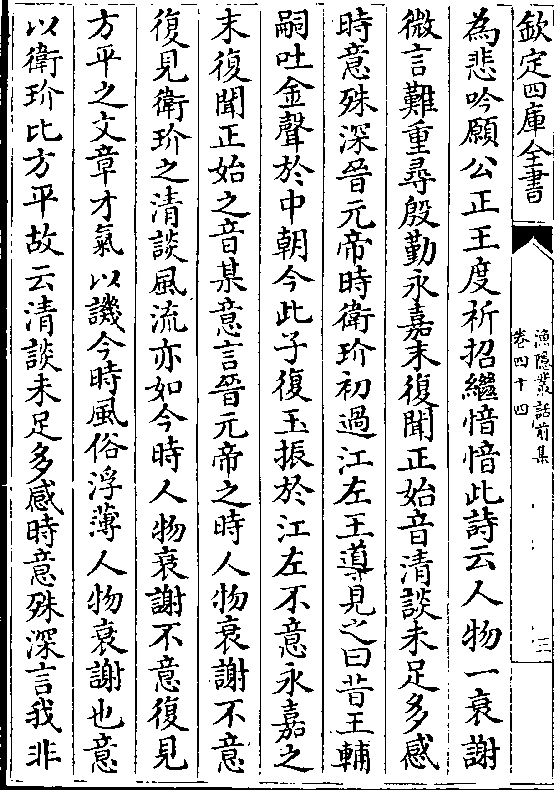 欽定四庫全書
漁隱叢話前集
卷四十四
三
為悲吟願公正王度祈招繼愔愔此詩云人物一衰謝
微言難重尋殷勤永嘉末復聞正始音清談未足多感
時意殊深晉元帝時衛玠初過江左王導見之曰昔王輔
嗣吐金聲於中朝今此子復玉振於江左不意永嘉之
末復聞正始之音某意言晉元帝之時人物衰謝不意
復見衛玠之清談風流亦如今時人物衰謝不意復見
方平之文章才氣以譏今時風俗浮薄人物衰謝也意
以衛玠比方平故云清談未足多感時意殊深言我非